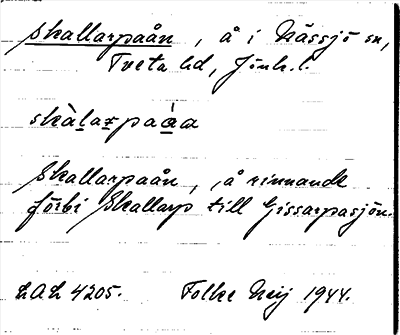 Skallarpaån, å i Nässjö sn,
Tveta hd, Jönk. l.
skàlarpaáa
Skallarpaån, å rinnande
förbi Skallarp till Gissarpasjön.
LAL 4205. Folke Meij 1944.